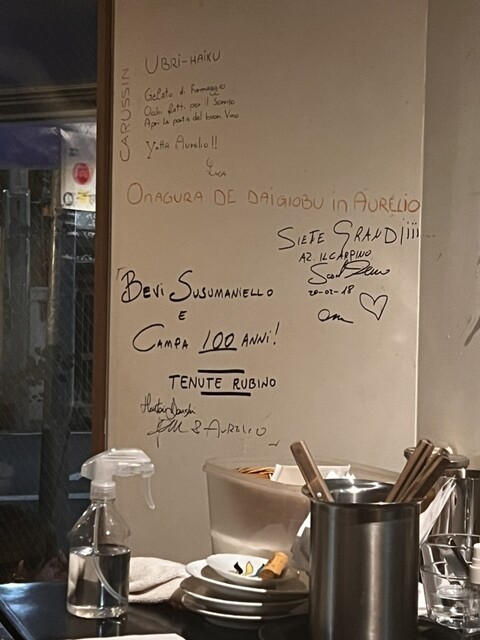 CARUSSIN
UBRI-HAIKU
Gelato di Formaggio
Occhi fatti per il Sorriso
Apri la porta del buon Vino
Yatta Aurelio!!
LUCA
ONAGURA DE DAIGIOBU in AURELIO
SIETE GRANDI¡¡¡
AZ. IL CARPINO
20-02-18
BEVI SUSUMANIELLO
E
CAMPA 100 ANNI!
TENUTE RUBINO
& AURELIO